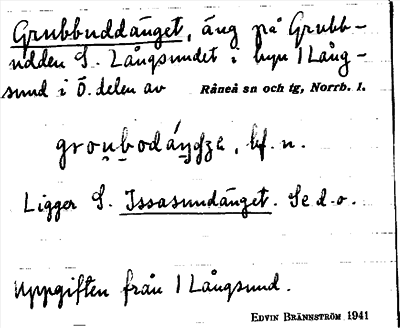 Grubbuddänget, äng på Grubb-
udden S. Långsundet i byn 1 Lång-
sund i Ö. delen av Råneå sn och tg, Norrb. l.
bf. n.
Ligger S. Issasundänget. Se d. o.
Uppgiften från 1 Långsund.
EDVIN BRÄNNSTRÖM 1941